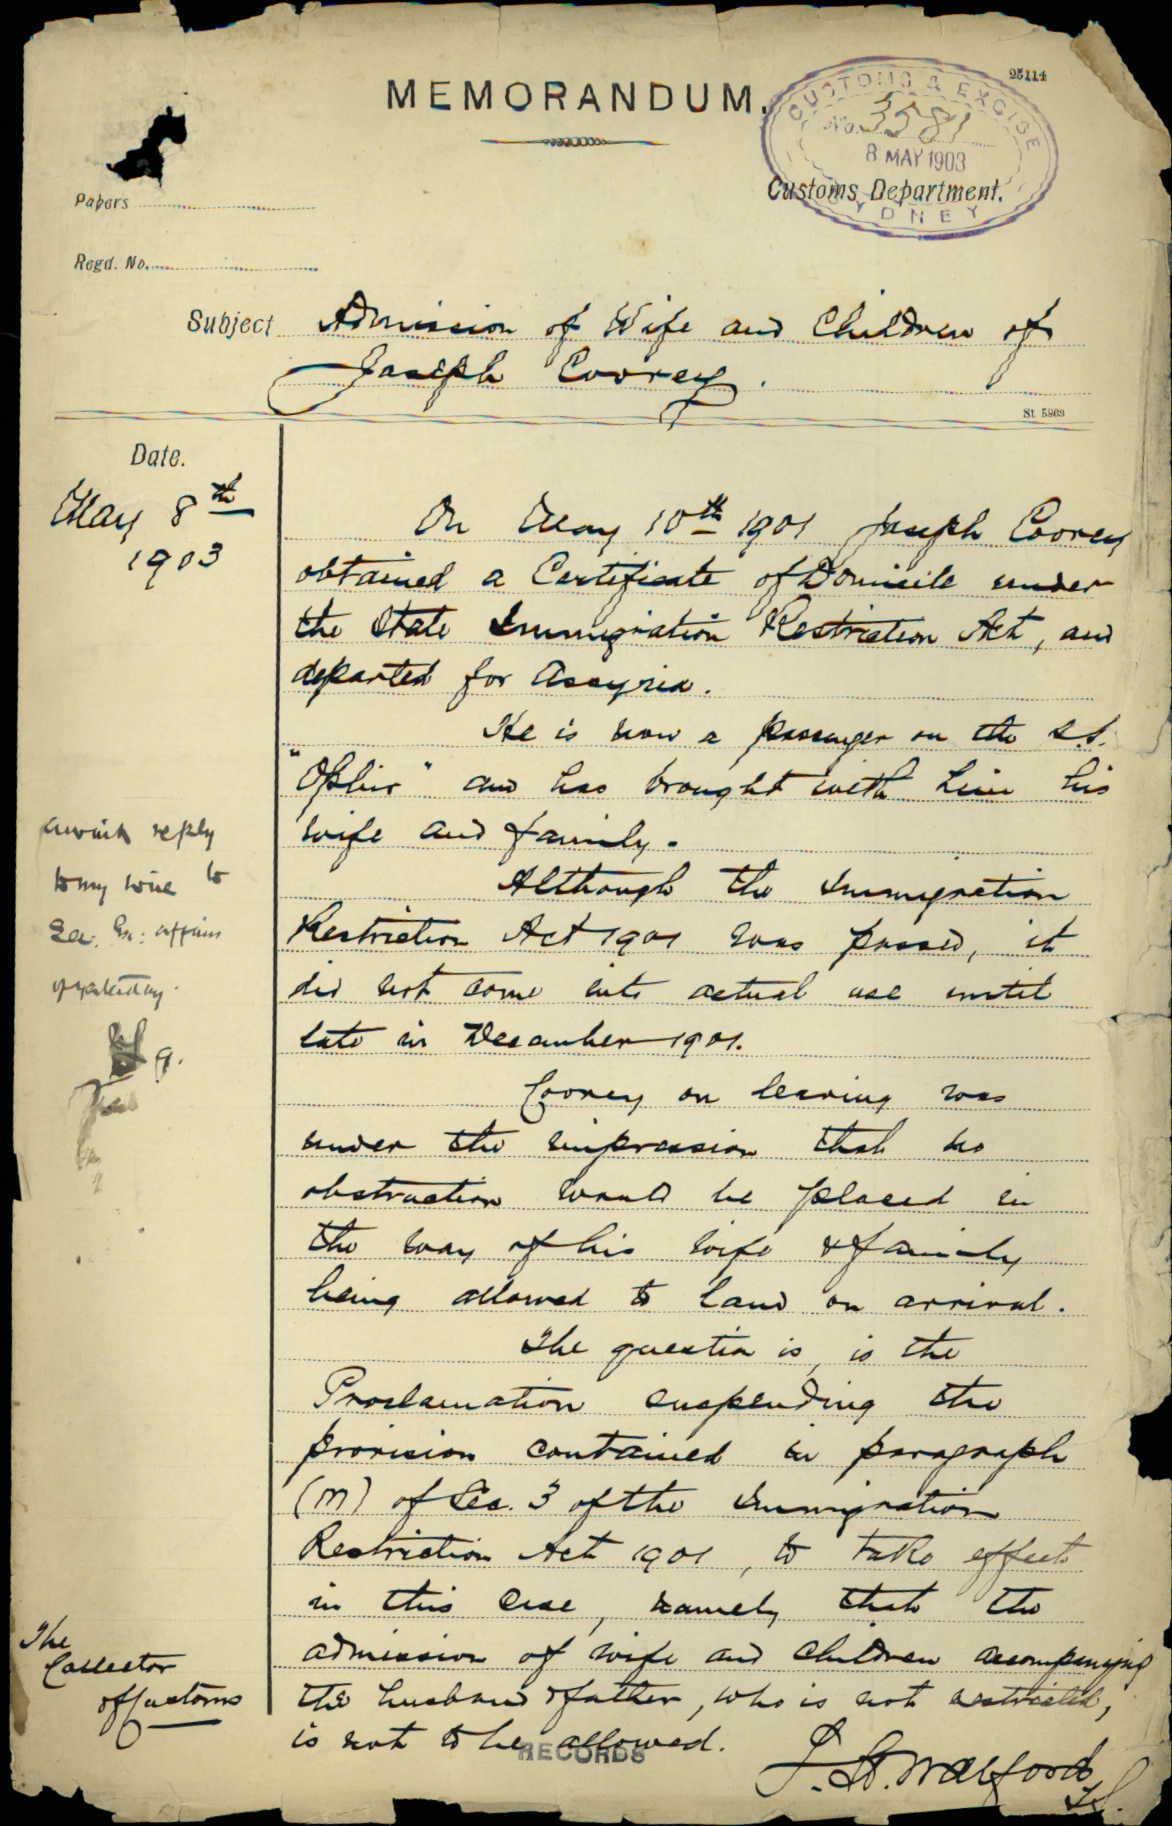 25114
MEMORANDUM.
CUSTOMS & EXCISE
No. 3581
8 MAY 1903
Customs Department.
SYDNEY
Papers
Regd. No.
Subject Admission of Wife and Children of
Joseph Coorey.
St 5963
Date.
May 8th
1903
On May 10th 1901 Joseph Coorey
obtained a Certificate of Domicile under
the State Immigration Restriction Act, and
departed for Assyria.
He is now a passenger on the s.s.
"Ophir" and has brought with him his
wife and family.
Although the Immigration
Restriction Act 1901 was passed, it
did not come into actual use until
late in December 1901.
Coorey on leaving was
under the impression that no
obstruction would be placed in
the way of his wife & family
being allowed to land on arrival.
The question is, is the
Proclamation suspending the
provision contained in paragraph
(m) of Sec. 3 of the Immigration
Restriction Act 1901, to take effect
in this case, namely that the
admission of wife and children accompanying
the husband & father, who is not restricted,
is not to be allowed.
J. H. Walford
await reply
to my wire to
Sec. Ex: affairs
of yesterday.
The
Collector
of Customs
RECORDS